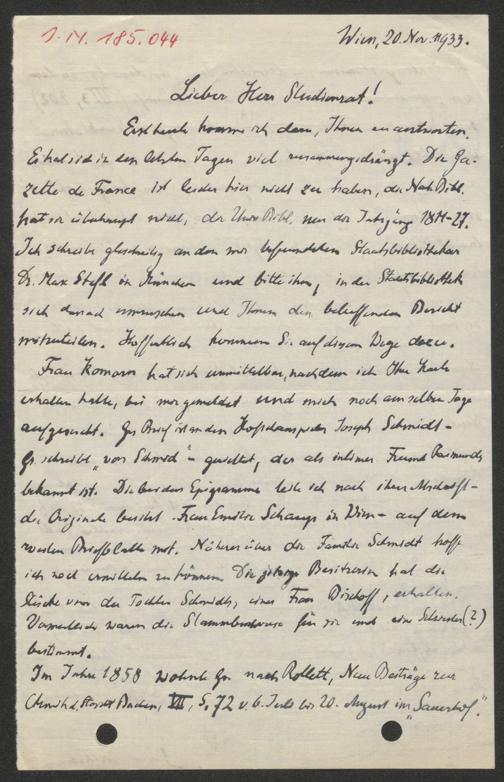 I. N. 185.044
Wien, 20. Nov. 1933.
Lieber Herr Studienrat!
Erst heute komme ich dazu, Ihnen zu antworten.
Es hat sich in den letzten Tagen viel zusammengedrängt. Die Ga-
zette de France ist leider hier nicht zu haben, die Nat. Bibl.
hat sie überhaupt nicht, die Univ. Bibl. nur die Jahrgänge 18-27.
Ich schreibe gleichzeitig an den mir befreundeten Staatsbibliothekar
Dr. Max Stefl in München und bitte ihn, in der Staatsbibliothek
sich danach umzusehen und Ihnen den betreffenden Bericht
mitzuteilen. Hoffentlich kommen Sie auf diesem Wege dazu.
Frau Komorn hat sich unmittelbar, nachdem ich Ihre Karte
erhalten hatte, bei mir gemeldet und mich noch am selben Tage
aufgesucht. Gr. Brief ist an den Hofschauspieler Joseph Schmidt -
Gr. schreibt "von Schmid" - gerichtet, der als intimer Freund Raimunds
bekannt ist. Die beiden Epigramme teile ich nach ihrer Abschrift -
die Originale besitzt Frau Emilie Schaup in Wien - auf dem
zweiten Briefblatte mit. Näheres über die Familie Schmidt hoffe
ich noch ermitteln zu können. Die jetzige Besitzerin hat die
Stücke von der Tochter Schmidts, einer Frau Bischoff, erhalten.
Vermutlich waren die Stammbuchverse für sie und eine Schwester (?)
bestimmt.
Im Jahre 1858 wohnte Gr. nach Rollett, Neue Beiträge zur
Chronik d. Stadt Baden, VII, S. 72 v. 6. Juli bis 20. August im "Sauerhof".